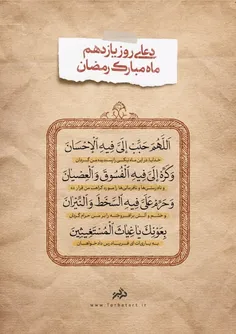 دعای روز یازدهم
ماه مبارک رمضان
اَللّهُمَّ حَبِّبْ اِلَیَّ فیهِ الْاِحْسانَ
خدایا در این ماه نیکی را پسندیده من گردان
وَکَرِّهْ اِلَیَّ فیهِ الْفُسُوقَ وَالْعِصْیانَ
و نادرستی‌ها و نافرمانی‌ها را مورد کراهت من قرار ده
وَحَرِّمْ عَلَیَّ فیهِ السَّخَطَ وَالنّیرانَ
و خشم و آتش برافروخته را بر من حرام گردان
بِعَوْنِکَ یا غِیاثَ الْمُسْتَغیثینَ
به یاری‌ات ای فریادرس دادخواهان
www.farhetart.ir